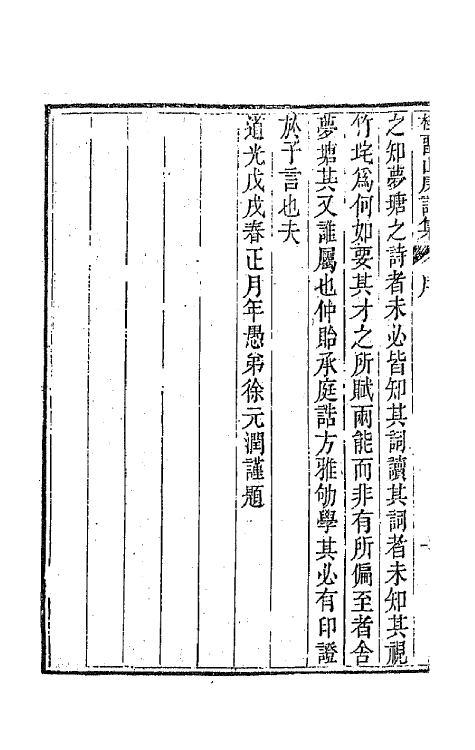 山房詩集 序
之知夢塘之詩者未必皆知其詞讀其詞者未知其視
竹垞爲何如要其才之所賦兩能而非有所偏至者舍
夢塘其又誰屬也仲貽承庭誥方雅劬學其必有印證
於予言也夫
道光戊戌春正月年愚弟徐元潤謹題